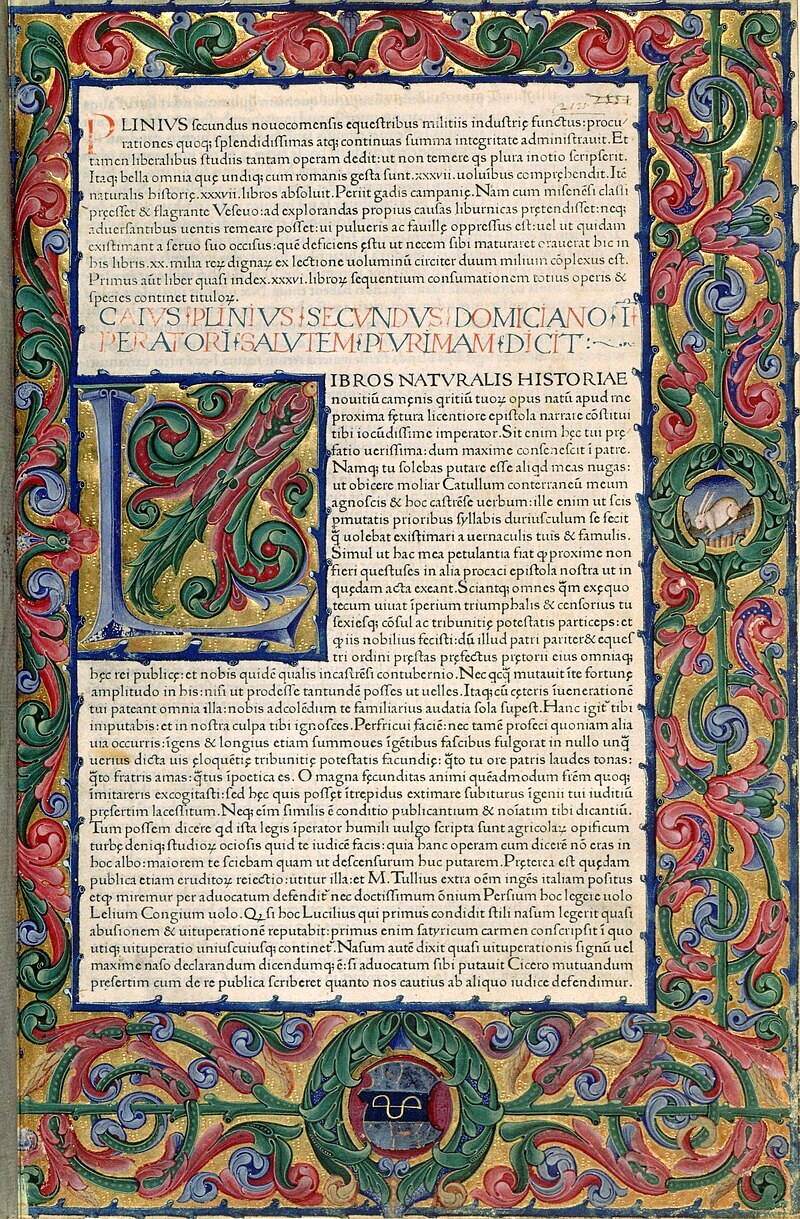 PLINIVS secundus nouocomensis equestribus militiis industrię functus:procu/
rationes quoq; splendidissimas atq; continuas summa integritate administrauit. Et
tamen liberalibus studiis tantam operam dedit: ut non temere qs plura inotio scripserit.
Itaq; bella omnia quę undiq; cum romanis gesta sunt.xxxvii.uoluibus comprehendit. Itē
naturalis historię.xxxvii.libros absoluit. Periit gadis campanię. Nam cum misenēsi classi
pręesset & flagrante Vesęuo:ad explorandas propius causas liburnicas prętendisset:neq;
aduersantibus uentis remeare posset:ui pulueris ac fauillę oppressus est:uel ut quidam
existimant a seruo suo occisus:quē deficiens ęstu ut necem sibi maturaret orauerat hic in
his libris.xx.milia reꝝ dignaꝝ ex lectione uoluminū circiter duum milium cōplexus est.
Primus aūt liber quasi index.xxxvi.libroꝝ sequentium consumationem totius operis &
species continet tituloꝝ.
CAIVS PLINIVS SECVNDVS DOMICIANO Ī
PERATORI SALVTEM PLVRIMAM DICIT :
LIBROS NATVRALIS HISTORIAE
nouitiū camęnis qritiū tuoꝝ opus natū apud me
proxima fętura licentiore epistola narrare cōstitui
tibi iocūdissime imperator. Sit enim hęc tui prę
fatio uerissima: dum maxime consenescit ī patre.
Namq; tu solebas putare esse aliqd meas nugas:
ut obicere moliar Catullum conterraneū meum
agnoscis & hoc castrēse uerbum:ille enim ut scis
pmutatis prioribus syllabis duriusculum se fecit
q̄ uolebat existimari a uernaculis tuis & famulis.
Simul ut hac mea petulantia fiat ꝙ proxime non
fieri questuses in alia procaci epistola nostra ut in
quędam acta exeant. Sciantq; omnes q̄m exęquo
tecum uiuat īperium triumphalis & censorius tu
sexiesq; cōsul ac tribunitię potestatis particeps:et
ꝙ iis nobilius fecisti:dū illud patri pariter& eques
tri ordini pręstas pręfectus prętorii eius omniaq;
hęc rei publicę:et nobis quidē qualis incastrēsi contubernio. Nec qcq̄ mutauit īte fortunę
amplitudo in his:nisi ut prodesse tantundē posses ut uelles. Itaq; cū cęteris īuenerationē
tui pateant omnia illa:nobis adcolēdum te familiarius audatia sola supest. Hanc igit̄ tibi
imputabis:et in nostra culpa tibi ignosces. Perfricui faciē:nec tamē profeci quoniam alia
uia occurris:īgens & longius etiam summoues īgētibus fascibus fulgorat in nullo unq̄
uerius dicta uis eloquētię tribunitię potestatis facundię: q̄to tu ore patris laudes tonas:
q̄to fratris amas:q̄tus īpoetica es. O magna fęcunditas animi quēadmodum frēm quoq;
imitareris excogitasti:sed hęc quis possēt ītrepidus extimare subiturus īgenii tui iuditiū
pręsertim lacessitum. Neq; eīm similis ē conditio publicantium & noīatim tibi dicantiū.
Tum possem dicere qd ista legis īperator humili uulgo scripta sunt agricolaꝝ opificum
turbę deniq; studioꝝ ociosis quid te iudicē facis:quia hanc operam cum dicerē nō eras in
hoc albo:maiorem te sciebam quam ut descensurum huc putarem. Pręterea est quędam
publica etiam eruditoꝝ reiectio:utitur illa:et M. Tullius extra oēm ingēs italiam positus
etꝙ miremur per aduocatum defendit̄ nec doctissimum ōnium Persium hoc legere uolo
Lelium Congium uolo. Qꝝ si hoc Lucilius qui primus condidit stili nasum legerit quasi
abusionem & uituperationē reputabit:primus enim satyricum carmen conscripsit ī quo
utiq; uituperatio uniuscuiusq; continet̄. Nasum autē dixit quasi uituperationis signū uel
maxime naso declarandum dicendumq; ē:si aduocatum sibi putauit Cicero mutuandum
pręsertim cum de re publica scriberet quanto nos cautius ab aliquo iudice defendimur.